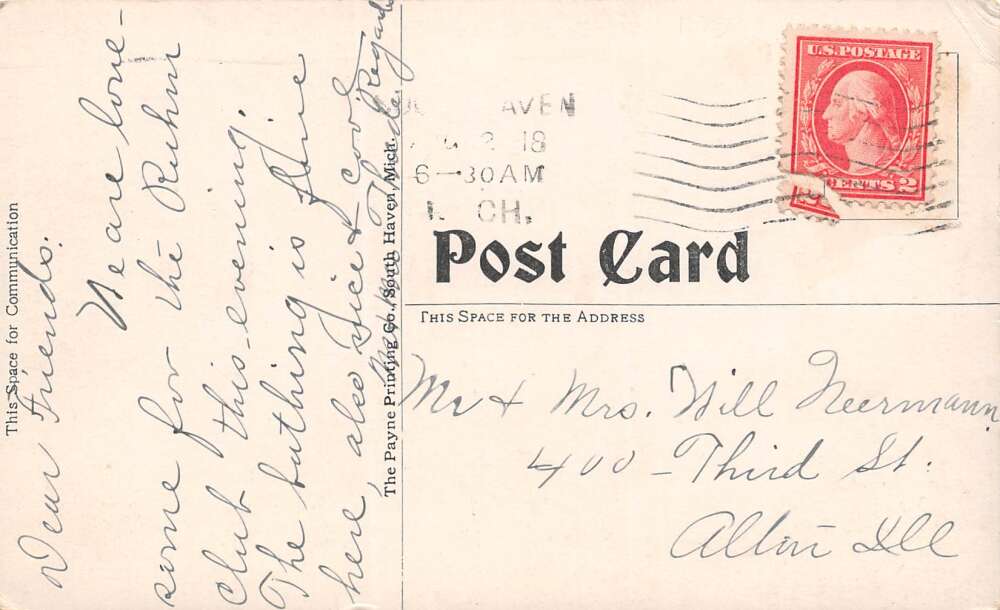 This Space for Communication
Dear Friends:
We are lone-
some for the Ruhm
Club this evening.
The bathing is fine
here, also nice & cool
Regards
The Payne Printing Co., South Haven, Mich.
AVEN
2 18
6-30AM
CH.
U.S.POSTAGE
CENTS 2
Post Card
THIS SPACE FOR THE ADDRESS
Mr & Mrs. Will Neermann
400 - Third St.
Alton Ill